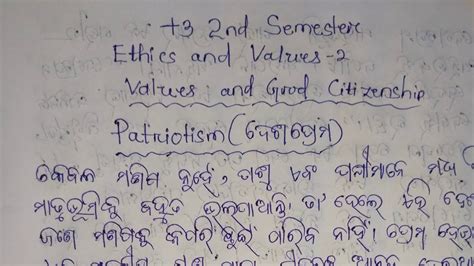 +3 2nd Semester
Ethics and Values-2
Values and Good Citizenship
Patriotism (ଦେଶପ୍ରେମ)
କେବଳ ମଣିଷ ନୁହେଁ, ପଶୁ ଏବଂ ପକ୍ଷୀମାନେ ମଧ୍ୟ
ମାତୃଭୂମିକୁ ବହୁତ ଭଲପାଆନ୍ତି ତା' ହେଲେ ଏହି
ଜଣେ ମଣିଷକୁ କିପରି ଛୁଇଁ ପାରିବ ନାହିଁ। ପ୍ରେମ